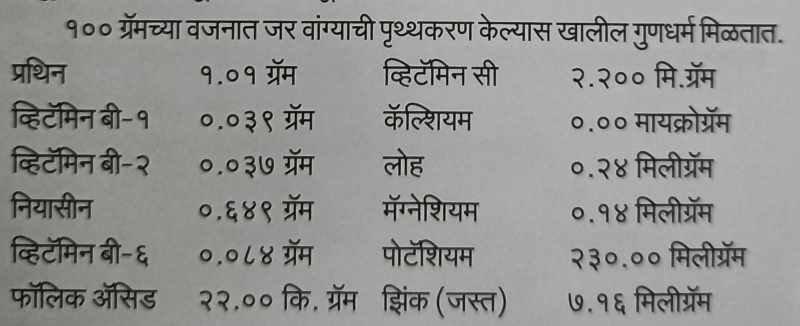 १०० ग्रॅमच्या वजनात जर वांग्याची पृथ्थकरण केल्यास खालील गुणधर्म मिळतात.
प्रथिन १.०१ ग्रॅम व्हिटॅमिन सी २.२०० मि.ग्रॅम
व्हिटॅमिन बी-१ ०.०३९ ग्रॅम कॅल्शियम ०.०० मायक्रोग्रॅम
व्हिटॅमिन बी-२ ०.०३७ ग्रॅम लोह ०.२४ मिलीग्रॅम
नियासीन ०.६४९ ग्रॅम मॅग्नेशियम ०.१४ मिलीग्रॅम
व्हिटॅमिन बी-६ ०.०८४ ग्रॅम पोटॅशियम २३०.०० मिलीग्रॅम
फॉलिक ॲसिड २२.०० कि. ग्रॅम झिंक (जस्त) ७.१६ मिलीग्रॅम